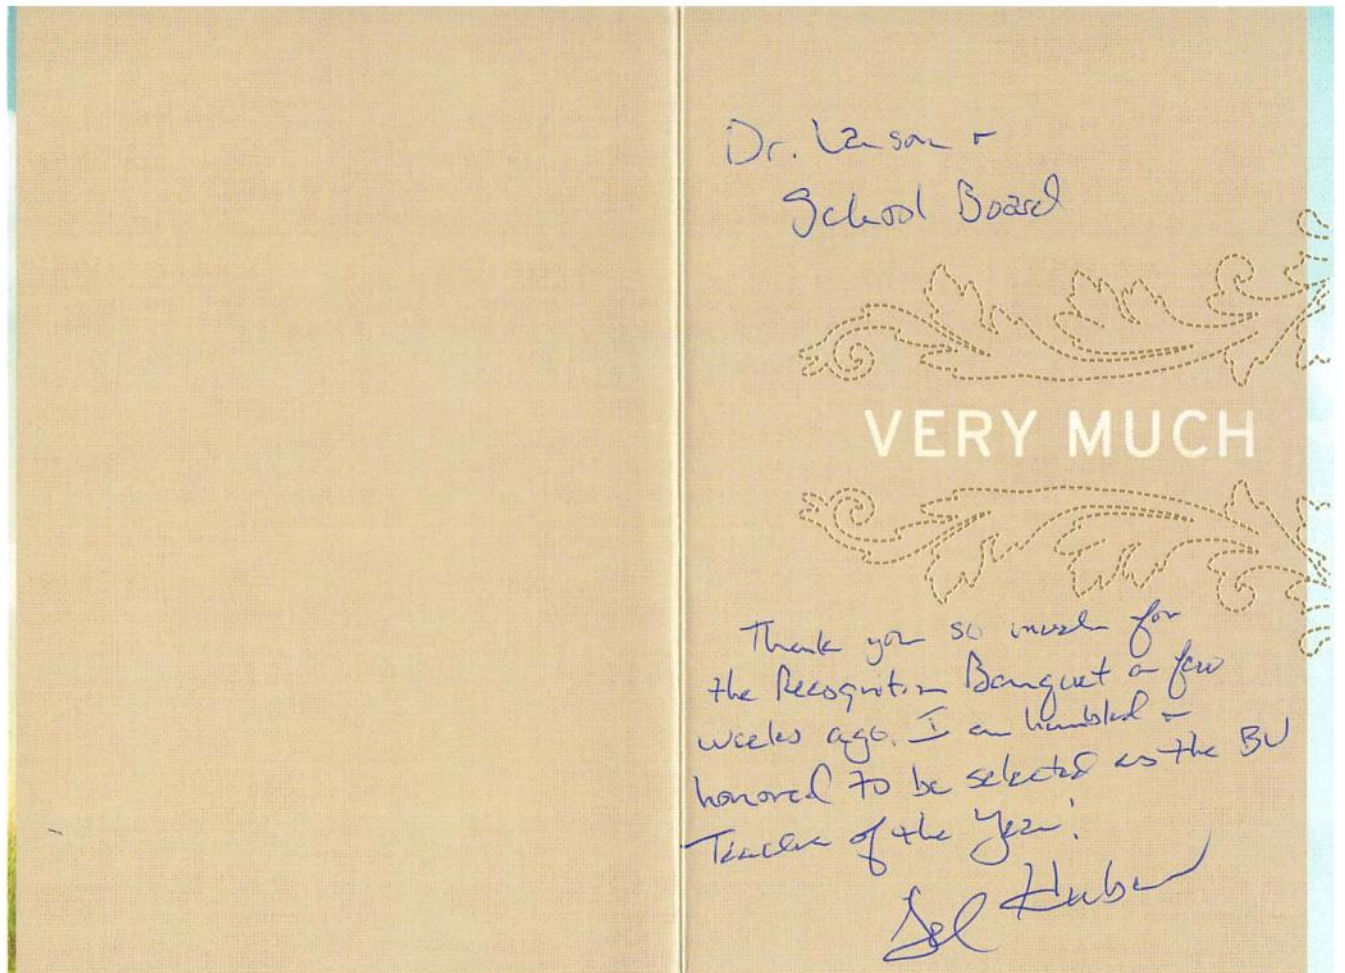 Dr. Larson +
School Board
VERY MUCH
Thank you so much for
the Recognition Banquet a few
weeks ago. I am humbled +
honored to be selected as the BV
Teacher of the Year!
Huber